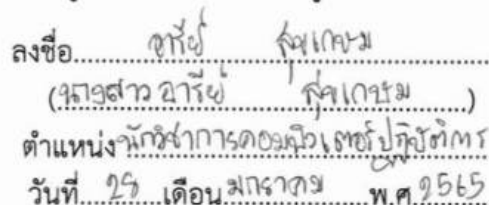 ลงชื่อ อารีย์ สุขเกษม
(นางสาวอารีย์ สุขเกษม)
ตำแหน่งนักวิชาการคอมพิวเตอร์ปฏิบัติการ
วันที่ 28 เดือน มกราคม พ.ศ. 2565